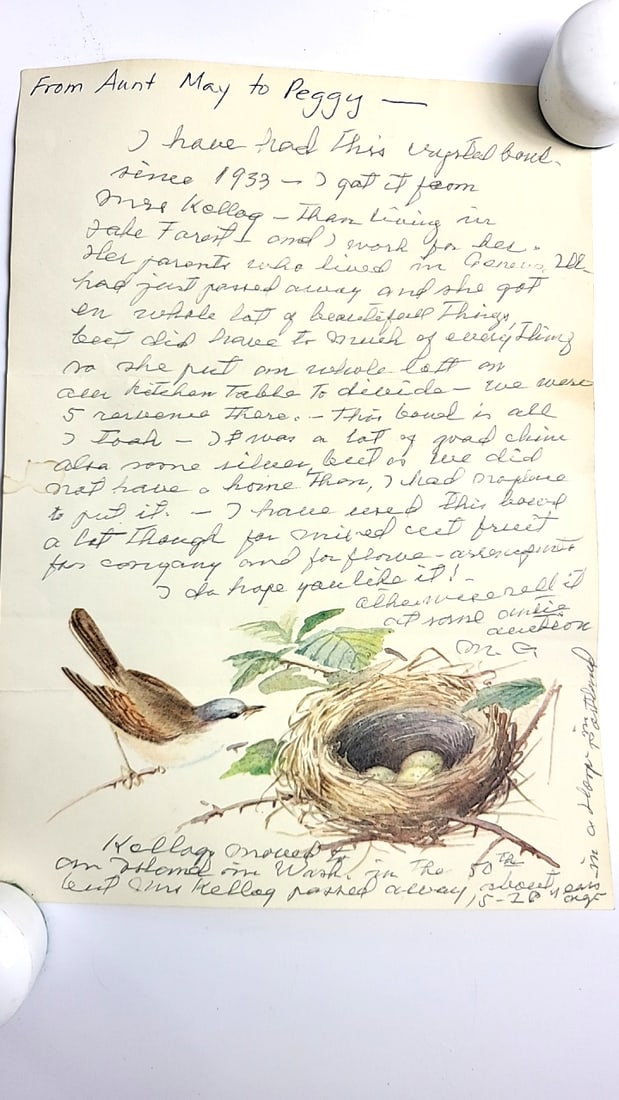 From Aunt May to Peggy —
I have had this crystal bowl
since 1933 — I got it from
Mrs Kellog — than living in
Lake Forest and I work for her.
Her parents who lived in Geneva, Ill.
had just passed away and she got
en whole lot of beautifull things,
but did have to much of everything
so she put an whole lott on
our kitchen table to divide — we were
5 there. — this bowl is all
I took — It was a lot of good chine
also some silver but as we did
not have a home than, I had noplace
to put it. — I have used this bowl
a lot though for mixed cut fruit
for company and for flower-
I do hope you like it! —
otherwise sell it
at some
auction
M G
Kellog moved to
an Island in Wash. in the 50th
but Mrs Kellog passed away about
15-20 years ago
in a in Portland